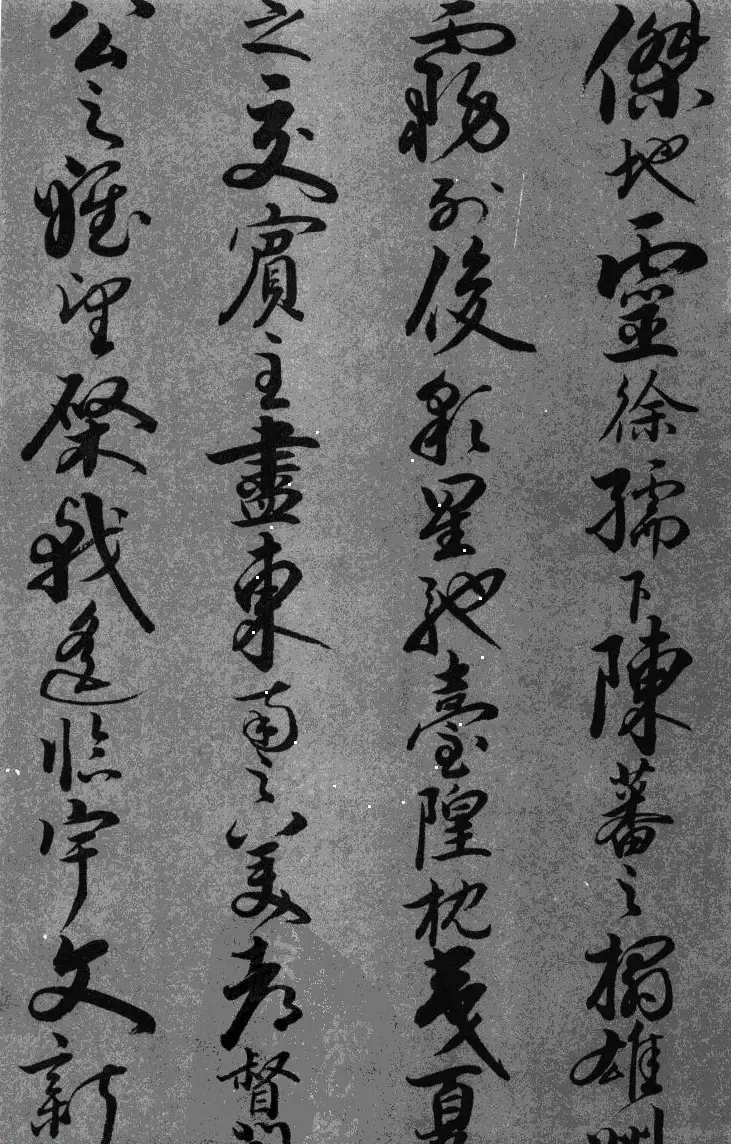 傑地靈徐孺下陳蕃之榻雄
霧列俊彩星馳臺隍枕夷夏
之交賓主盡東南之美都督
公之雅望棨戟遙臨宇文新